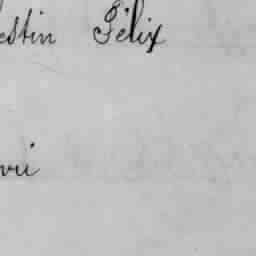 estin Félix
vri